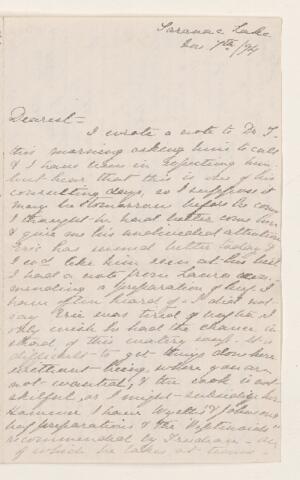 Saranac Lake
Jan 7th/94
Dearest =
I wrote a note to Dr T.
this morning asking him to call
& I have been in expecting him
but hear that this is one of his
consulting days, so I suppose it
may be tomorrow before he comes
I thought he had better come here
& give me his undivided attention
Eric has seemed better today &
I wd like him seen at his best
I had a note from Laura
a preparation of beef I
have often heard of - I did not
say Eric was tired of
only wish he had the chance in-
stead, of this watery soup. It is
difficult to get things done here
without being where you are
not wanted, & the cook is not
skilful, or I might
However I have Wyeth's & Johnson's
beef preparations & the "Peptonoids"
recommended by Trudeau -
of which he takes at times -